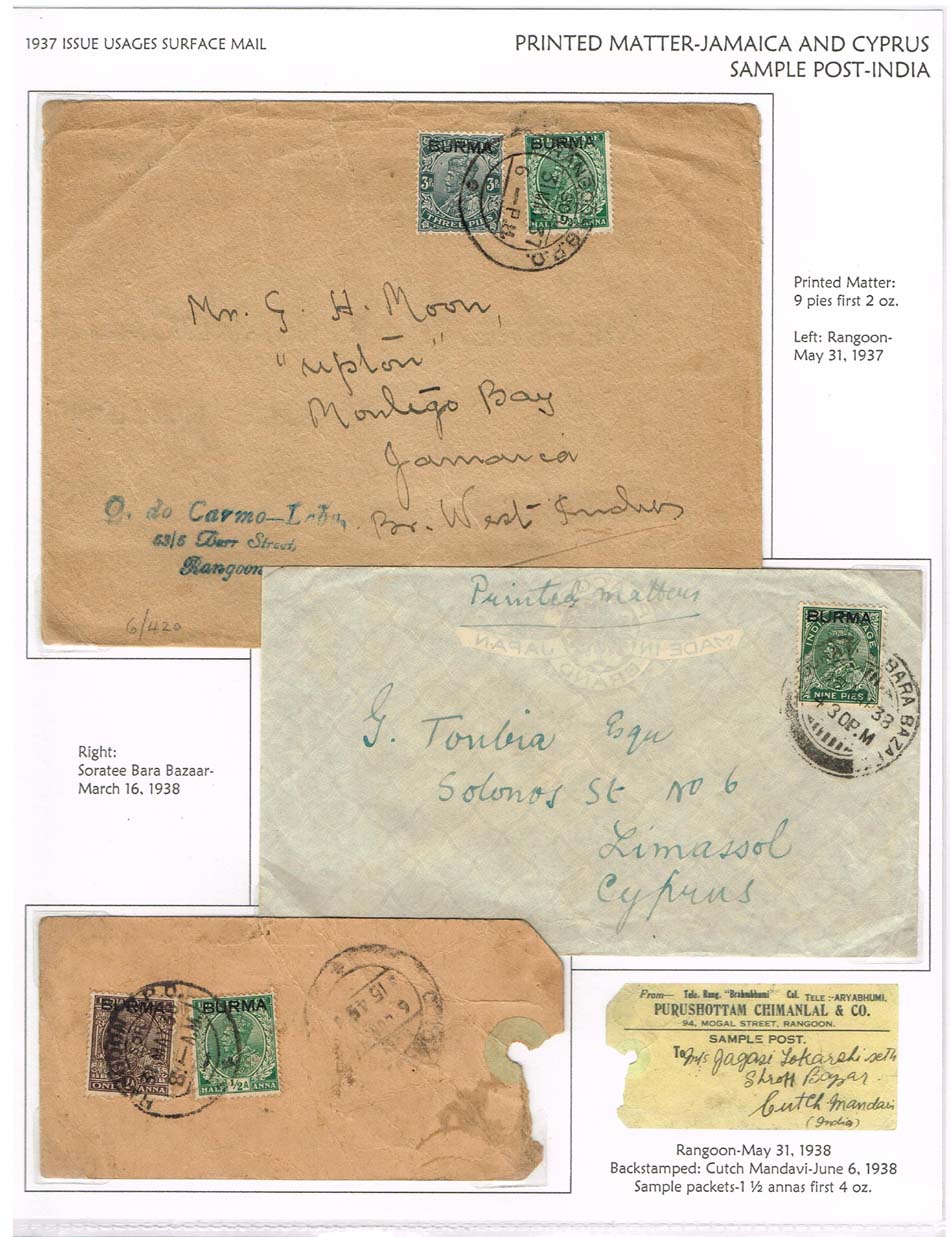 1937 ISSUE USAGES SURFACE MAIL
PRINTED MATTER-JAMAICA AND CYPRUS
SAMPLE POST-INDIA
BURMA
3P 3P
THREE PIES
BURMA
HALF ANNA
RANGOON G.P.O.
6 - P.M
Mr. G. H. Moon,
"Upton"
Montego Bay
Jamaica
Br. West Indies
do Carmo-Lobo
53/5 Barr Street,
Rangoon
6/420
Printed Matter:
9 pies first 2 oz.
Left: Rangoon-
May 31, 1937
Printed matters
MADE IN JAPAN
BRAND
BURMA
NINE PIES
BARA BAZAR
38
4.30P.M
G. Toubia Esqu
Solonos St No 6
Limassol
Cyprus
Right:
Soratee Bara Bazaar-
March 16, 1938
BURMA
ONE 1A ANNA
BURMA
HALF ½A ANNA
From- Tele. Rang. "Brahmbhumi" Cal. TELE :-ARYABHUMI.
PURUSHOTTAM CHIMANLAL & CO.
94, MOGAL STREET, RANGOON.
SAMPLE POST.
To M/s Jagasi Lokarshi Seth
Shroff Bazar
Cutch Mandavi
(India)
Rangoon-May 31, 1938
Backstamped: Cutch Mandavi-June 6, 1938
Sample packets-1 ½ annas first 4 oz.